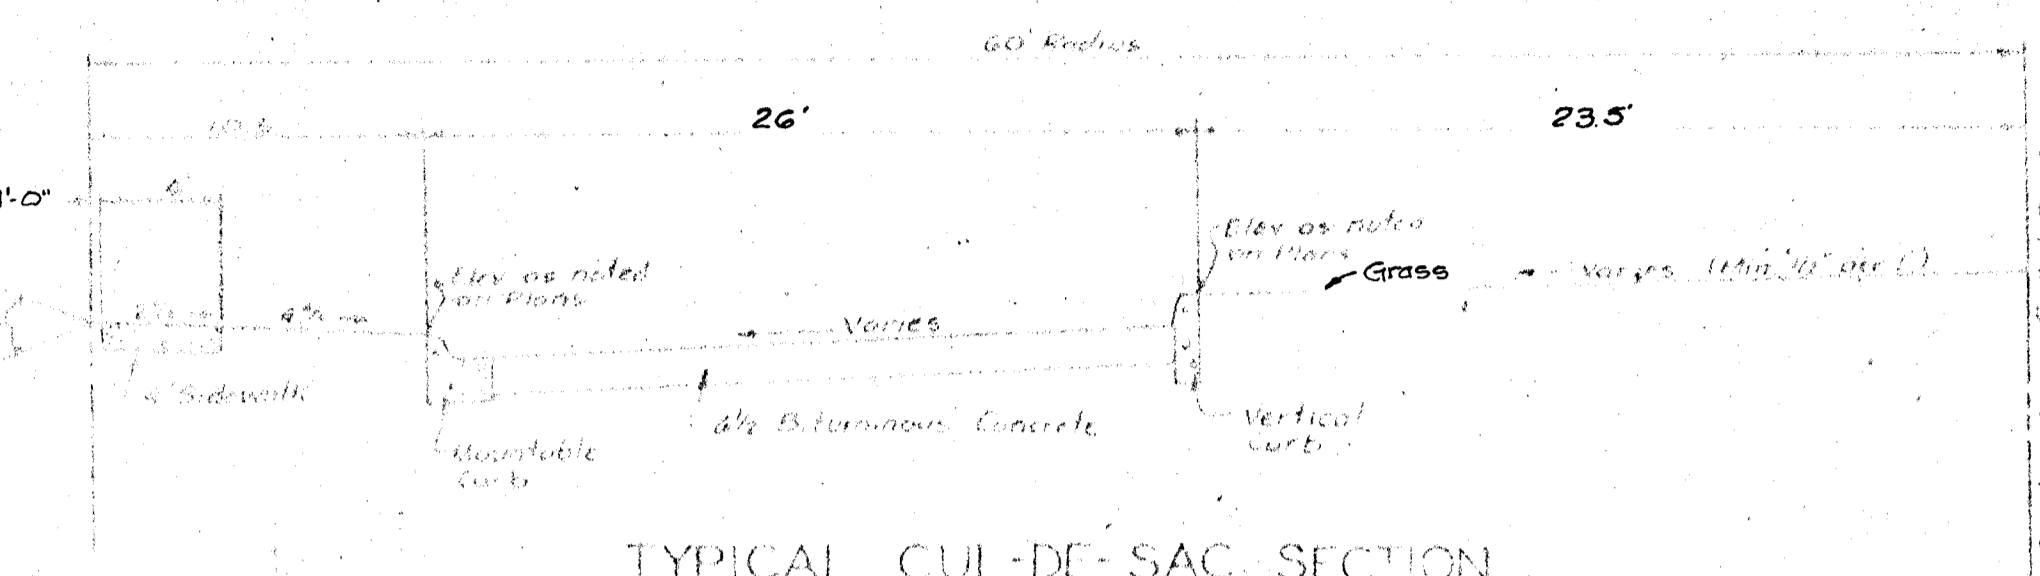 60' Radius
10.5
26'
23.5'
1'-0"
4'
Elev as noted
on Plans
Elev as noted
on Plans
Grass
Varies (Min. per 1')
Varies
4' Sidewalk
6½ Bituminous Concrete
Vertical
Curb
Mountable
Curb
TYPICAL CUL-DE-SAC SECTION